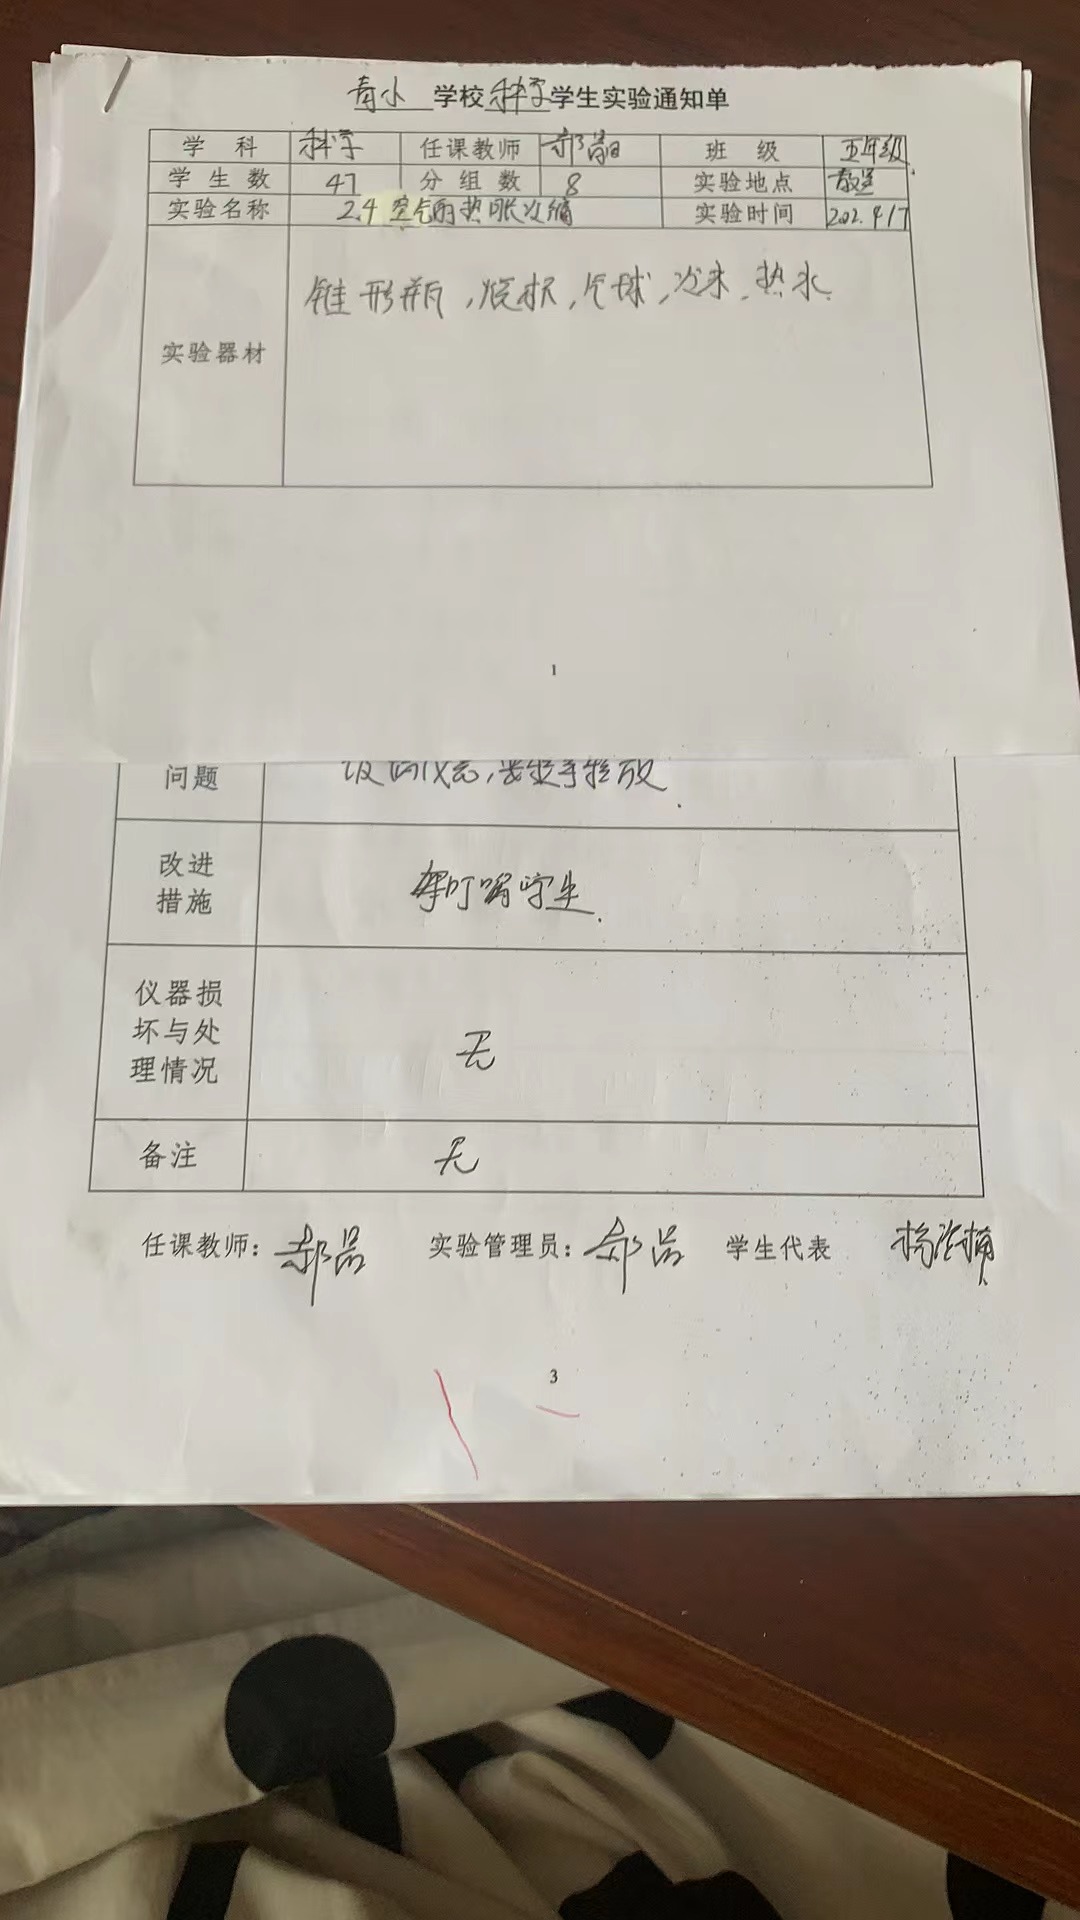 青小 学校 科学 学生实验通知单
学 科 科学 任课教师 郝 班 级 五年级
学 生 数 47 分 组 数 8 实验地点 教室
实验名称 2.4 空气的热胀冷缩 实验时间
实验器材 锥形瓶,烧杯,气球,冷水,热水.
1
问题 轻放.
改进
措施 叮嘱学生.
仪器损
坏与处
理情况 无
备注 无
任课教师: 郝 实验管理员: 郝 学生代表 杨
3